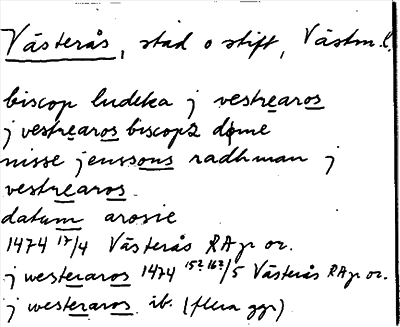 Västerås, stad o stift, Västm.l.
biscop ludeka j vestrearos
j vestrearos biscops døme
nisse jenssons radhman j
vestrearos.
datum arosie
1474 17/4 Västerås RAp or.
j westeraros 1474 15? 16?/5 Västerås RAp or.
j westeraros ib. (flera ggr)